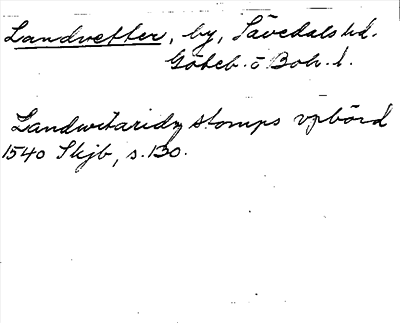 Landvetter, by, Sävedals hd.
Göteb. o Boh. l.
Landwetaridz stomps vpbörd
1540 Skjb, s. 130.